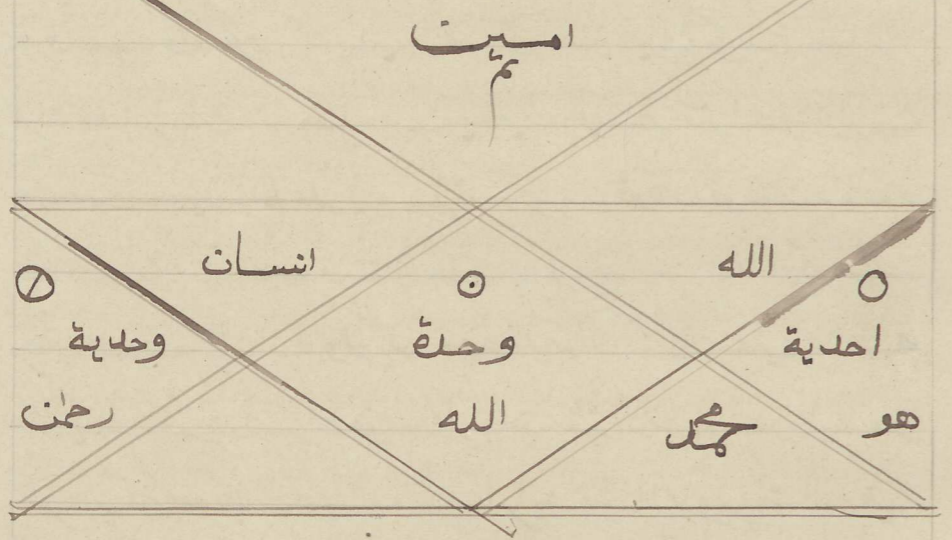 امىيت
تم
الله انسان
احدية وحدة وحدية
هو محمد الله رحمن